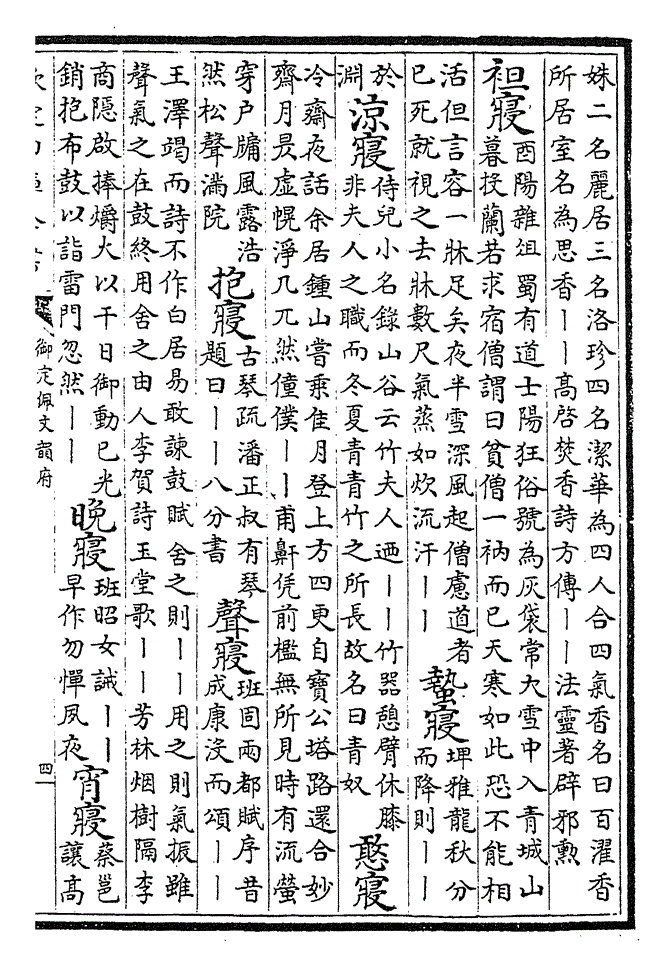 姝二名麗居三名洛珍四名潔華為四人合四氣香名曰百濯香
所居室名為思香丨丨高啓焚香詩方傳丨丨法靈著辟邪勲
袒寢
酉陽雜俎蜀有道士陽狂俗號為灰袋常大雪中入青城山
暮投蘭若求宿僧謂曰貧僧一衲而已天寒如此恐不能相
活但言容一牀足矣夜半雪深風起僧慮道者
已死就視之去牀數尺氣蒸如炊流汗丨丨
蟄寢
埤雅龍秋分
而降則丨丨
於
淵
涼寢
侍兒小名錄山谷云竹夫人迺丨丨竹器憩臂休膝
非夫人之職而冬夏青青竹之所長故名曰青奴
憨寢
冷齋夜話余居鍾山嘗乘佳月登上方四更自寶公塔路還合妙
齋月昃虛幌淨几兀然僮僕丨丨甫鼾凭前檻無所見時有流螢
穿户牖風露浩
然松聲滿院
抱寢
古琴疏潘正叔有琴
題曰丨丨八分書
聲寢
班固兩都賦序昔
成康沒而頌丨丨
王澤竭而詩不作白居易敢諫鼓賦舍之則丨丨用之則氣振雖
聲氣之在鼓終用舍之由人李賀詩玉堂歌丨丨芳林烟樹隔李
商隱啟捧爝火以干日御動已光
銷抱布鼓以詣雷門忽然丨丨
晩寢
班昭女誡丨丨
早作勿憚夙夜
宵寢
蔡邕
讓高
御定佩文韻府
四